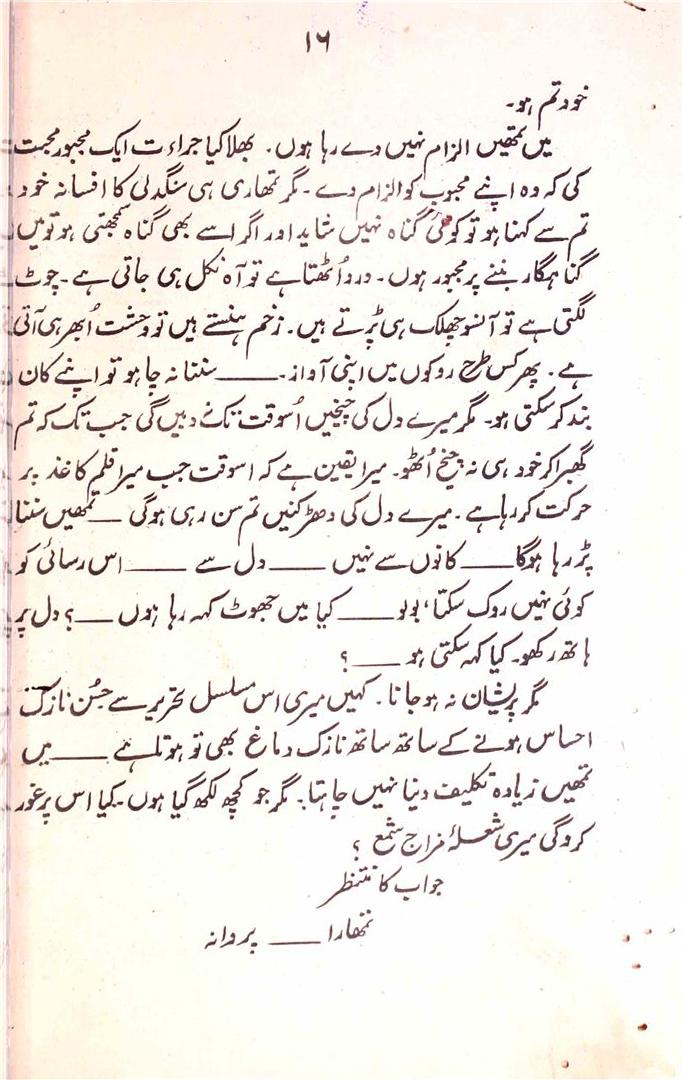 ۱۶
خود تم ہو۔
میں تمھیں الزام نہیں دے رہا ہوں۔ بھلا کیا جراءت ایک مجبور محبت
کی کہ وہ اپنے محبوب کو الزام دے۔ مگر تمھاری ہی سنگدلی کا افسانہ خود
تم سے کہنا ہو تو کوئی گناہ نہیں شاید اور اگر اسے بھی گناہ سمجھتی ہو تو میں
گناہگار بننے پر مجبور ہوں۔ درد اُٹھتا ہے تو آہ نکل ہی جاتی ہے۔ چوٹ
لگتی ہے تو آنسو چھلک ہی پڑتے ہیں۔ زخم ہنستے ہیں تو وحشت اُبھر ہی آتی
ہے۔ پھر کس طرح روکوں میں اپنی آواز۔ ــــــ سننا نہ چاہو تو اپنے کان
بند کر سکتی ہو۔ مگر میرے دل کی چیخیں اُسوقت تک نہ دبیں گی جب تک کہ تم
گھبرا کر خود ہی نہ چیخ اُٹھو۔ میرا یقین ہے کہ اسوقت جب میرا قلم کاغذ پر
حرکت کر رہا ہے۔ میرے دل کی دھڑکنیں تم سن رہی ہوگی ــــــ تمھیں سننا
پڑ رہا ہوگا ــــــ کانوں سے نہیں ــــــ دل سے ــــــ اس رسائی کو
کوئی نہیں روک سکتا، بولو ــــــ کیا میں جھوٹ کہہ رہا ہوں ــــــ؟ دل پر
ہاتھ رکھو۔ کیا کہہ سکتی ہو ــــــ؟
مگر پریشان نہ ہو جانا۔ کہیں میری اس مسلسل تحریر سے حُسن نازک
احساس ہونے کے ساتھ ساتھ نازک دماغ بھی تو ہوتا ہے ــــــ میں
تمھیں زیادہ تکلیف دینا نہیں چاہتا۔ مگر جو کچھ لکھ گیا ہوں۔ کیا اس پر غور
کروگی میری شعلۂ مزاج شمع ؟
جواب کا منتظر
تمھارا ــــــ پروانہ